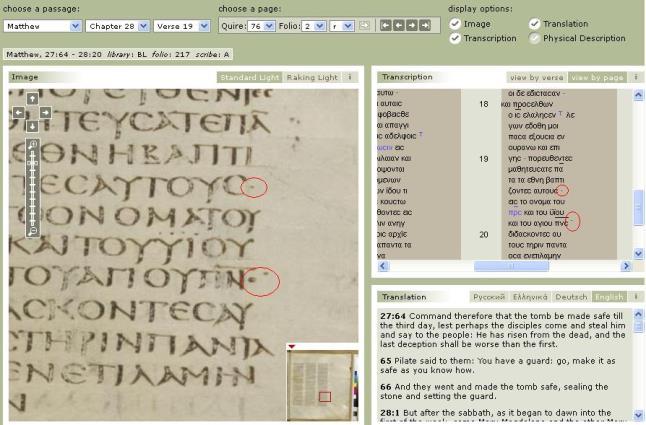 choose a passage:
Matthew
Chapter 28
Verse 19
choose a page:
Quire: 76 Folio: 2 r
display options:
Image
Translation
Transcription
Physical Description
Matthew, 27:64 - 28:20 library: BL folio: 217 scribe: A
Image
Standard Light
Raking Light
i
ΤΕΥCΑΤΕΠΑ
ΕΘΝΗΒΑΠΤΙ
ΤΕCΑΥΤΟΥC·
ΟΝΟΜΑΤΟΥ
ΚΑΙΤΟΥΥΙΟΥ
ΤΟΥΑΓΙΟΥΠΝC·
ΑCΚΟΝΤΕCΑΥ
ΤΗΡΙΝΠΑΝΤΑ
ΕΝΕΤΙΛΑΜΗΝ
Transcription
view by verse
view by page
i
οι δε εδιστασαν ·
18 και προσελθων
ο ις ελαλησεν τ λε
γων εδοθη μοι
πασα εξουσια εν
ουρανω και επι
19 γης · πορευθεντες
μαθητευσατε πα
τα τα εθνη βαπτι
ζοντες αυτους ·
εις το ονομα του
πρς και του υϊου
και του αγιου πνς ·
20 διδασκοντες αυ
τους τηριν παντα
οσα ενετιλαμην
Translation
Русский
Ελληνικά
Deutsch
English
i
27:64 Command therefore that the tomb be made safe till
the third day, lest perhaps the disciples come and steal him
and say to the people: He has risen from the dead, and the
last deception shall be worse than the first.
65 Pilate said to them: You have a guard: go, make it as
safe as you know how.
66 And they went and made the tomb safe, sealing the
stone and setting the guard.
28:1 But after the sabbath, as it began to dawn into the